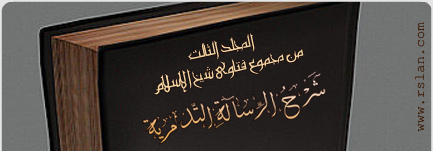 المجلد الثالث
من مجموع فتاوى شيخ الإسلام
شرح الرسالة التدمرية
www.rslan.com